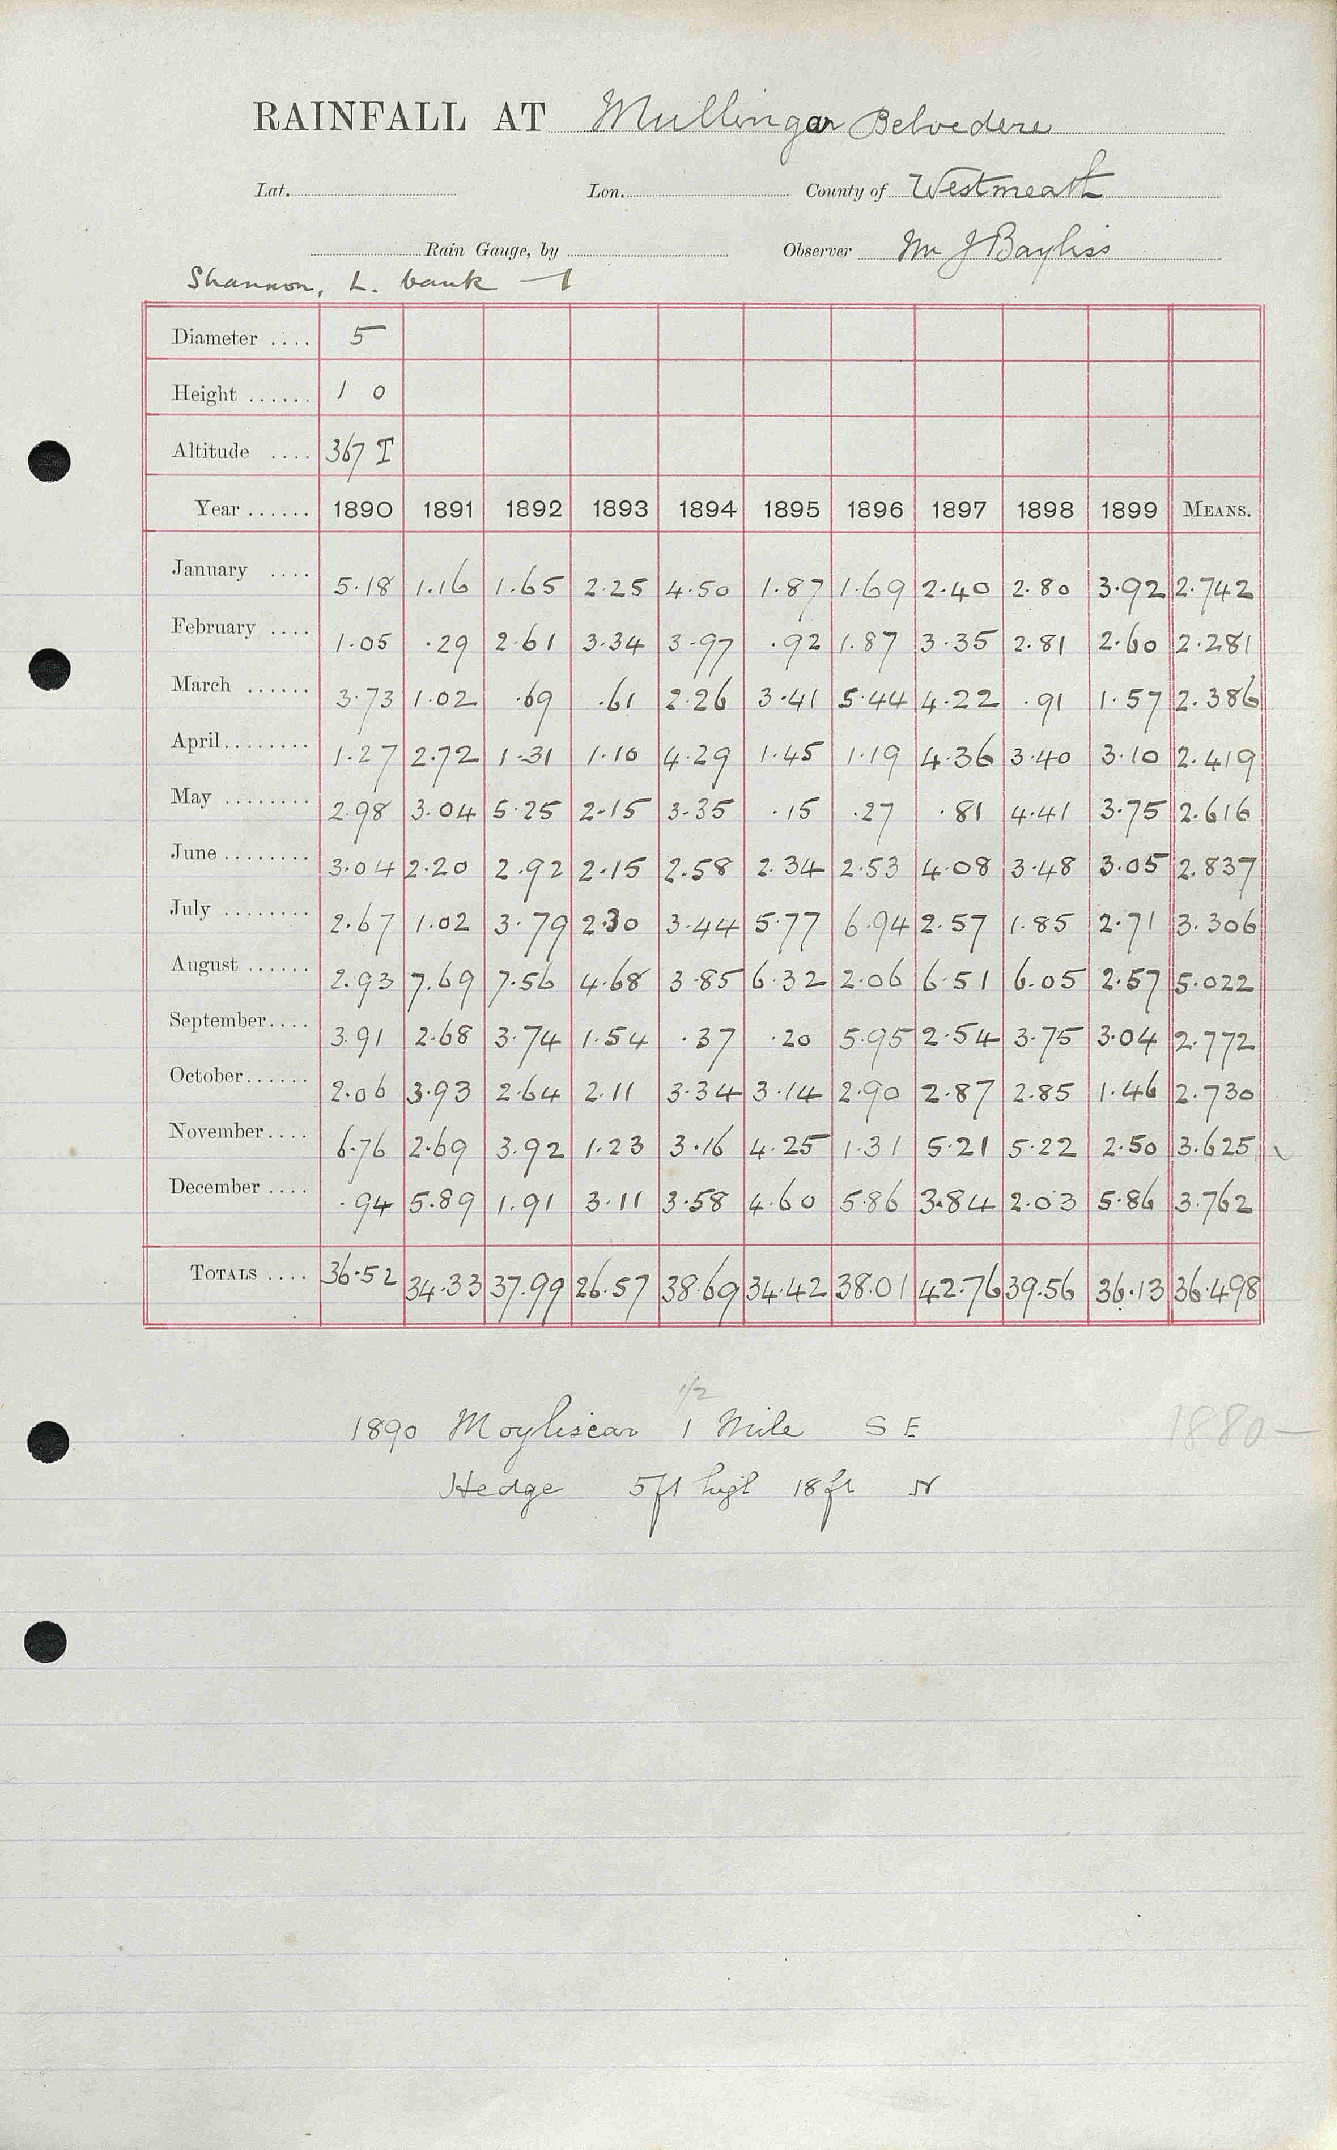 RAINFALL AT Mullingar Belvedere
Lat. Lon. County of Westmeath
Rain Gauge, by Observer Mr J Bayliss
Shannon, L. bank
Diameter .... 5
Height ...... 1 0
Altitude .... 367 T
Year ...... 1890 1891 1892 1893 1894 1895 1896 1897 1898 1899 MEANS.
January .... 5.18 1.16 1.65 2.25 4.50 1.87 1.69 2.40 2.80 3.92 2.742
February .... 1.05 .29 2.61 3.34 3.97 .92 1.87 3.35 2.81 2.60 2.281
March ...... 3.73 1.02 .69 .61 2.26 3.41 5.44 4.22 .91 1.57 2.386
April........ 1.27 2.72 1.31 1.10 4.29 1.45 1.19 4.36 3.40 3.10 2.419
May ........ 2.98 3.04 5.25 2.15 3.35 .15 .27 .81 4.41 3.75 2.616
June ........ 3.04 2.20 2.92 2.15 2.58 2.34 2.53 4.08 3.48 3.05 2.837
July ........ 2.67 1.02 3.79 2.30 3.44 5.77 6.94 2.57 1.85 2.71 3.306
August ...... 2.93 7.69 7.56 4.68 3.85 6.32 2.06 6.51 6.05 2.57 5.022
September.... 3.91 2.68 3.74 1.54 .37 .20 5.95 2.54 3.75 3.04 2.772
October...... 2.06 3.93 2.64 2.11 3.34 3.14 2.90 2.87 2.85 1.46 2.730
November.... 6.76 2.69 3.92 1.23 3.16 4.25 1.31 5.21 5.22 2.50 3.625
December .... .94 5.89 1.91 3.11 3.58 4.60 5.86 3.84 2.03 5.86 3.762
TOTALS .... 36.52 34.33 37.99 26.57 38.69 34.42 38.01 42.76 39.56 36.13 36.498
1/2
1890 Moyliscar 1 Mile S E 1880-
Hedge 5ft high 18ft N